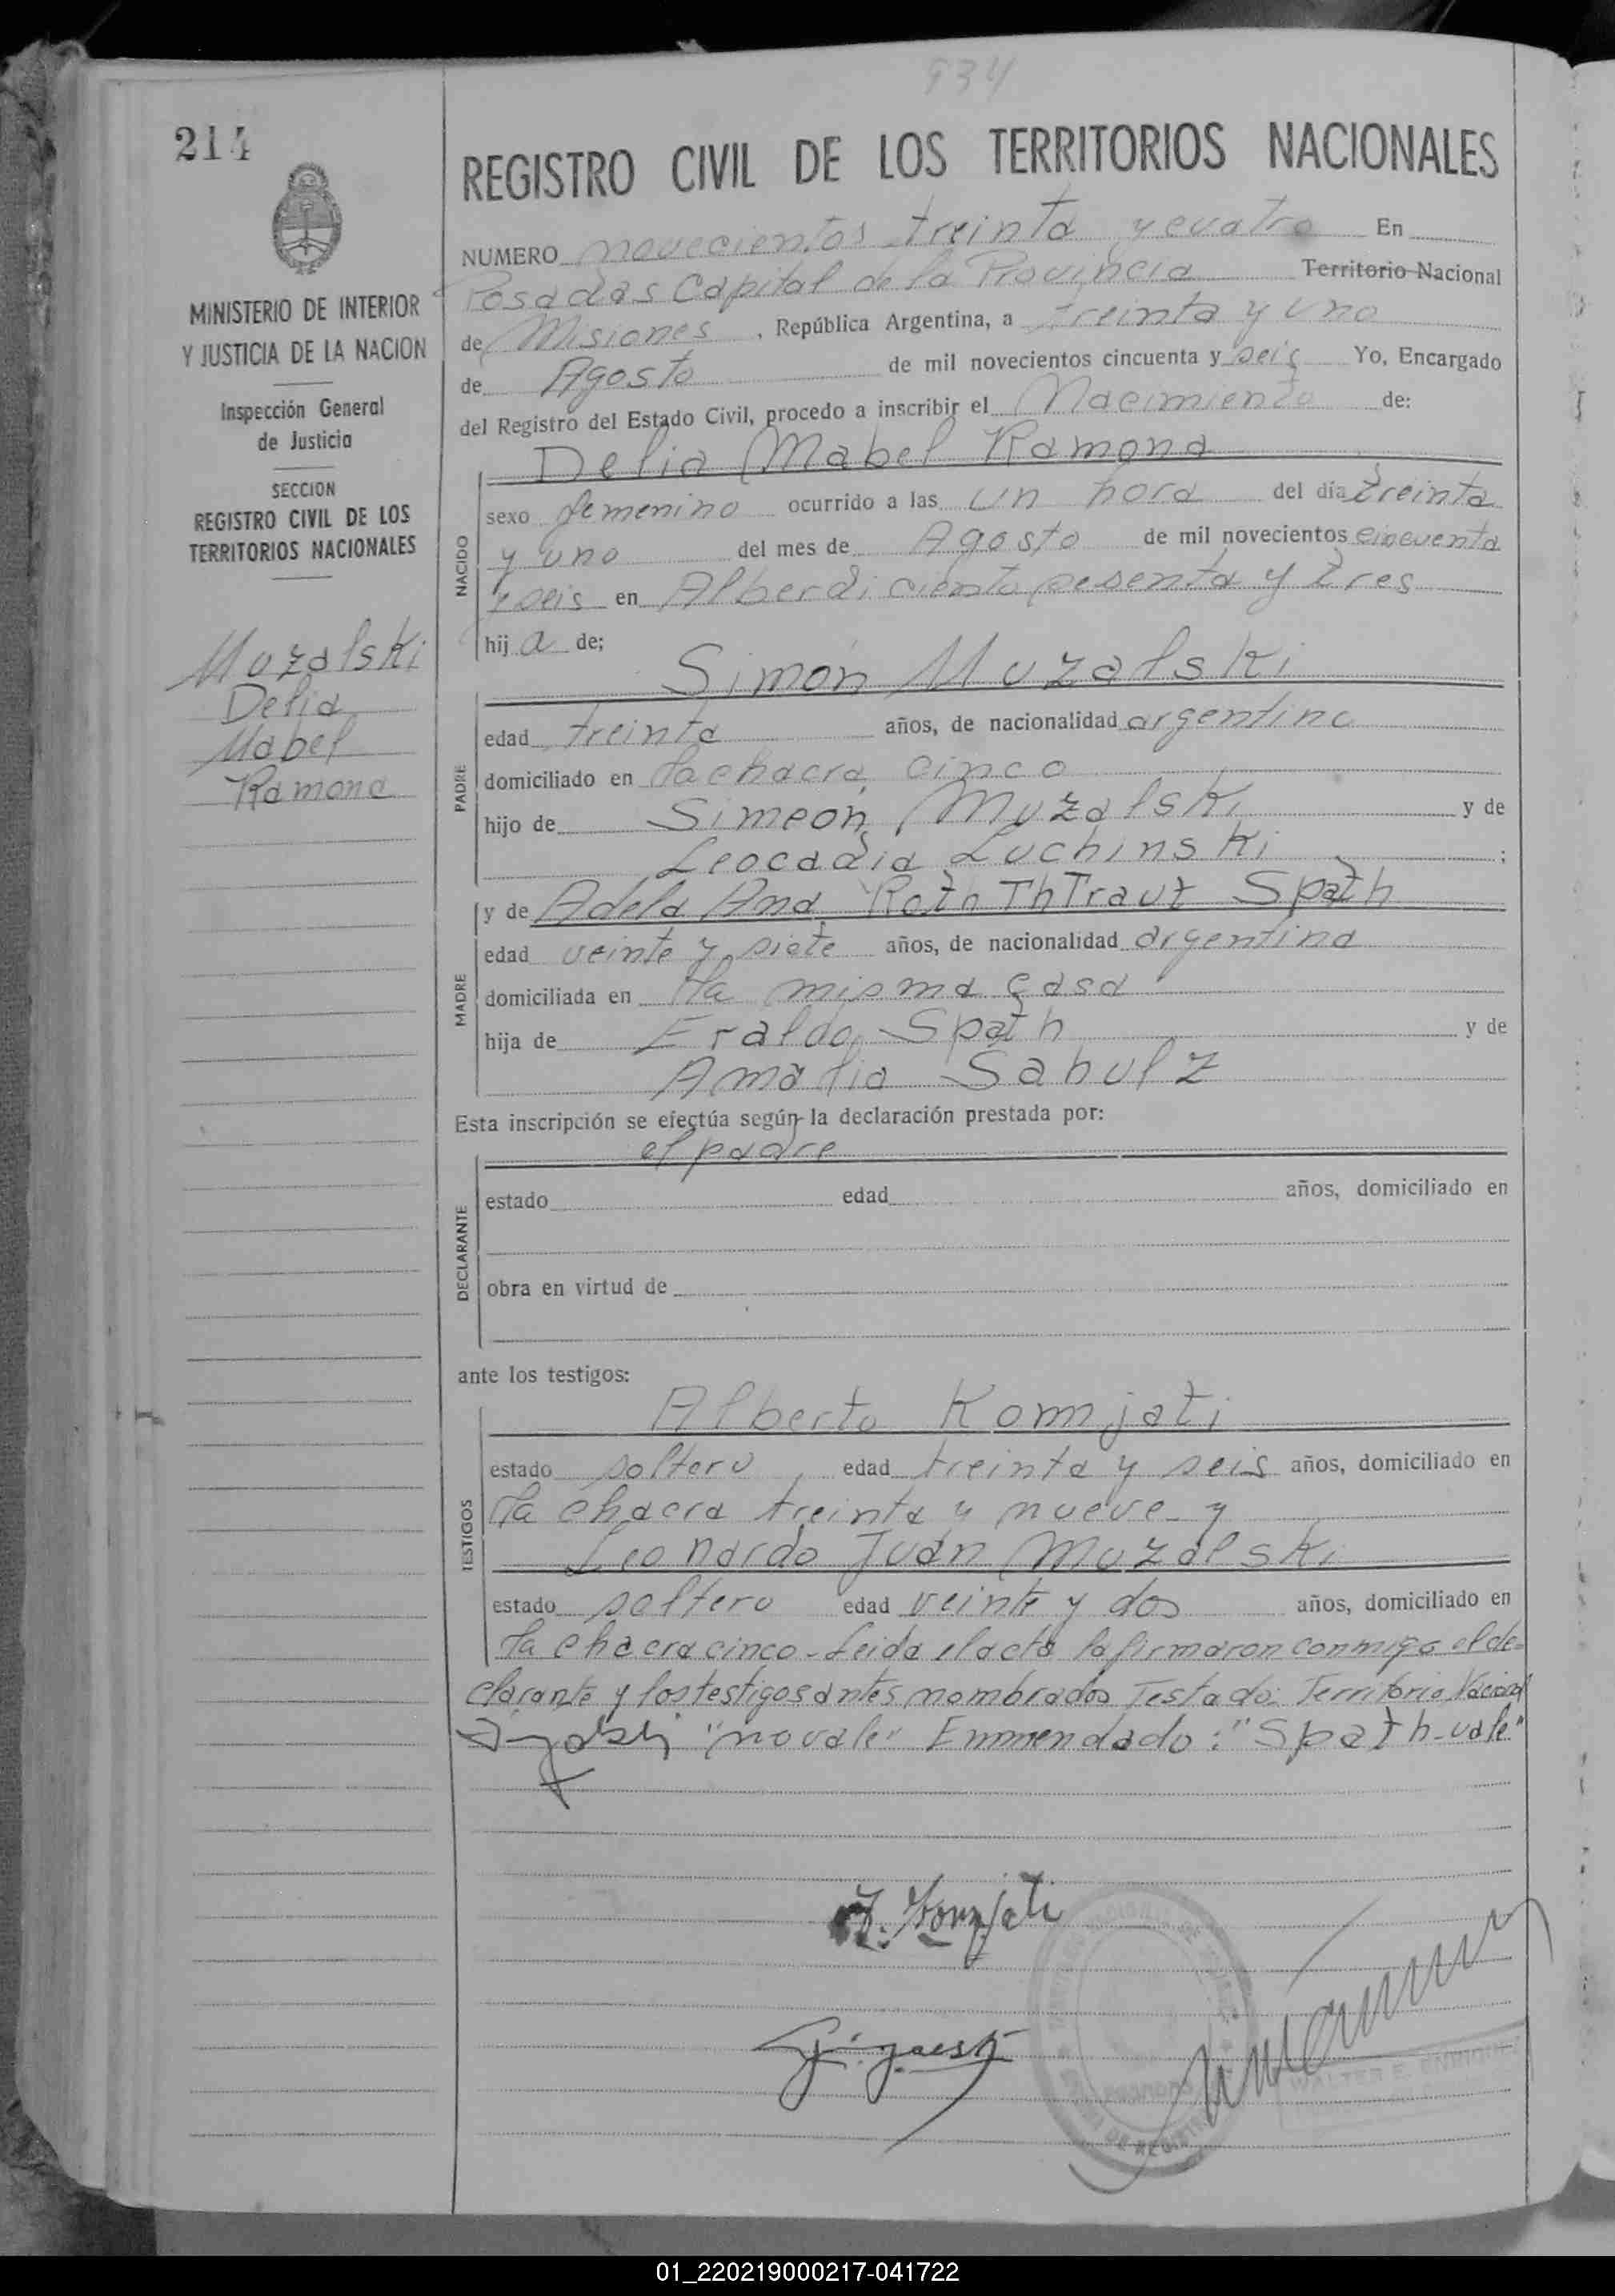 934
214
REGISTRO CIVIL DE LOS TERRITORIOS NACIONALES
MINISTERIO DE INTERIOR
Y JUSTICIA DE LA NACION
Inspección General
de Justicia
SECCION
REGISTRO CIVIL DE LOS
TERRITORIOS NACIONALES
Muzalski
Delia
Mabel
Ramona
NUMERO novecientos treinta y cuatro En
Posadas Capital de la Provincia Territorio Nacional
de Misiones, República Argentina, a treinta y uno
de Agosto de mil novecientos cincuenta y seis Yo, Encargado
del Registro del Estado Civil, procedo a inscribir el Nacimiento de:
NACIDO
Delia Mabel Ramona
sexo femenino ocurrido a las un hora del día treinta
y uno del mes de Agosto de mil novecientos cincuenta
y seis en Alberdi ciento sesenta y tres
hija de;
PADRE
Simón Muzalski
edad treinta años, de nacionalidad argentino
domiciliado en la chacra cinco
hijo de Simeón Muzalski y de
Leocadia Luchinski ;
MADRE
y de Adela Ana Roth ThTraut Spath
edad veinte y siete años, de nacionalidad argentina
domiciliada en la misma casa
hija de Eraldo Spath y de
Amalia Sahulz
Esta inscripción se efectúa según la declaración prestada por:
DECLARANTE
el padre
estado edad años, domiciliado en
obra en virtud de
ante los testigos:
TESTIGOS
Alberto Komjati
estado soltero, edad treinta y seis años, domiciliado en
la chacra treinta y nueve y
Leonardo Juan Muzalski
estado soltero edad veinte y dos años, domiciliado en
la chacra cinco - Leida el acta la firmaron conmigo el de-
clarante y los testigos antes nombrados Testado: Territorio Nacional
"no vale" Enmendado: "Spath-vale"
A. Komjati
WALTER E. ENRIQUEZ
01_220219000217-041722